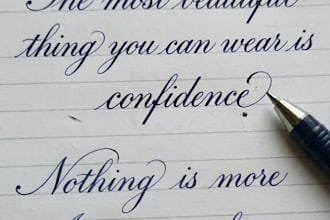 The most beautiful
thing you can wear is
confidence.
Nothing is more